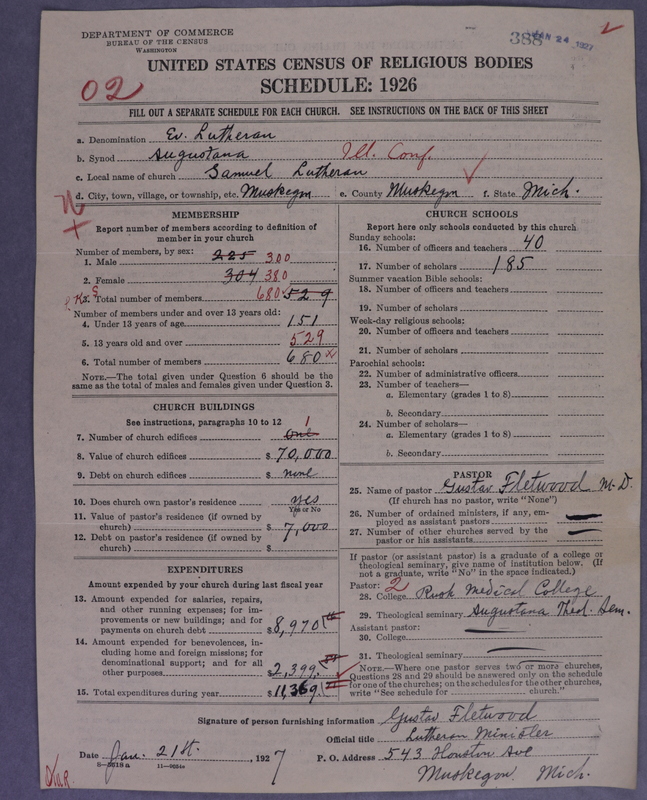 DEPARTMENT OF COMMERCE
BUREAU OF THE CENSUS
WASHINGTON
388 JAN 24 1927
UNITED STATES CENSUS OF RELIGIOUS BODIES
SCHEDULE: 1926
02
FILL OUT A SEPARATE SCHEDULE FOR EACH CHURCH. SEE INSTRUCTIONS ON THE BACK OF THIS SHEET
a. Denomination Ev. Lutheran
b. Synod Augustana Ill. Conf.
c. Local name of church Samuel Lutheran
d. City, town, village, or township, etc. Muskegon e. County Muskegon f. State Mich.
MEMBERSHIP
Report number of members according to definition of
member in your church
Number of members, by sex:
1. Male 225 300
2. Female 304 380
3. Total number of members 680 529
Number of members under and over 13 years old:
4. Under 13 years of age 151
5. 13 years old and over 529
6. Total number of members 680
NOTE.—The total given under Question 6 should be
same as the total of males and females given under Question 3.
CHURCH BUILDINGS
See instructions, paragraphs 10 to 12
7. Number of church edifices One 1
8. Value of church edifices $ 70,000
9. Debt on church edifices $ none
10. Does church own pastor's residence yes
Yes or No
11. Value of pastor's residence (if owned by
church) $ 7,000
12. Debt on pastor's residence (if owned by
church) $
EXPENDITURES
Amount expended by your church during last fiscal year
13. Amount expended for salaries, repairs,
and other running expenses; for im-
provements or new buildings; and for
payments on church debt $ 8,970
14. Amount expended for benevolences, in-
cluding home and foreign missions; for
denominational support; and for all
other purposes $ 2,399
15. Total expenditures during year $ 11,369
CHURCH SCHOOLS
Report here only schools conducted by this church
Sunday schools:
16. Number of officers and teachers 40
17. Number of scholars 185
Summer vacation Bible schools:
18. Number of officers and teachers
19. Number of scholars
Week-day religious schools:
20. Number of officers and teachers
21. Number of scholars
Parochial schools:
22. Number of administrative officers
23. Number of teachers—
a. Elementary (grades 1 to 8)
b. Secondary
24. Number of scholars—
a. Elementary (grades 1 to 8)
b. Secondary
PASTOR
25. Name of pastor Gustav Fletwood M.D.
(If church has no pastor, write "None")
26. Number of ordained ministers, if any, em-
ployed as assistant pastors
27. Number of other churches served by the
pastor or his assistants
If pastor (or assistant pastor) is a graduate of a college or
theological seminary, give name of institution below. (If
not a graduate, write "No" in the space indicated.)
Pastor: 2
28. College Rush Medical College
29. Theological seminary Augustana Theol. Sem.
Assistant pastor:
30. College
31. Theological seminary
NOTE.—Where one pastor serves two or more churches,
Questions 28 and 29 should be answered only on the schedule
for one of the churches; on the schedules for the other churches,
write "See schedule for church."
Signature of person furnishing information Gustav Fletwood
Official title Lutheran Minister
Date Jan. 21st, 1927 P. O. Address 543 Houston Ave
Muskegon Mich.